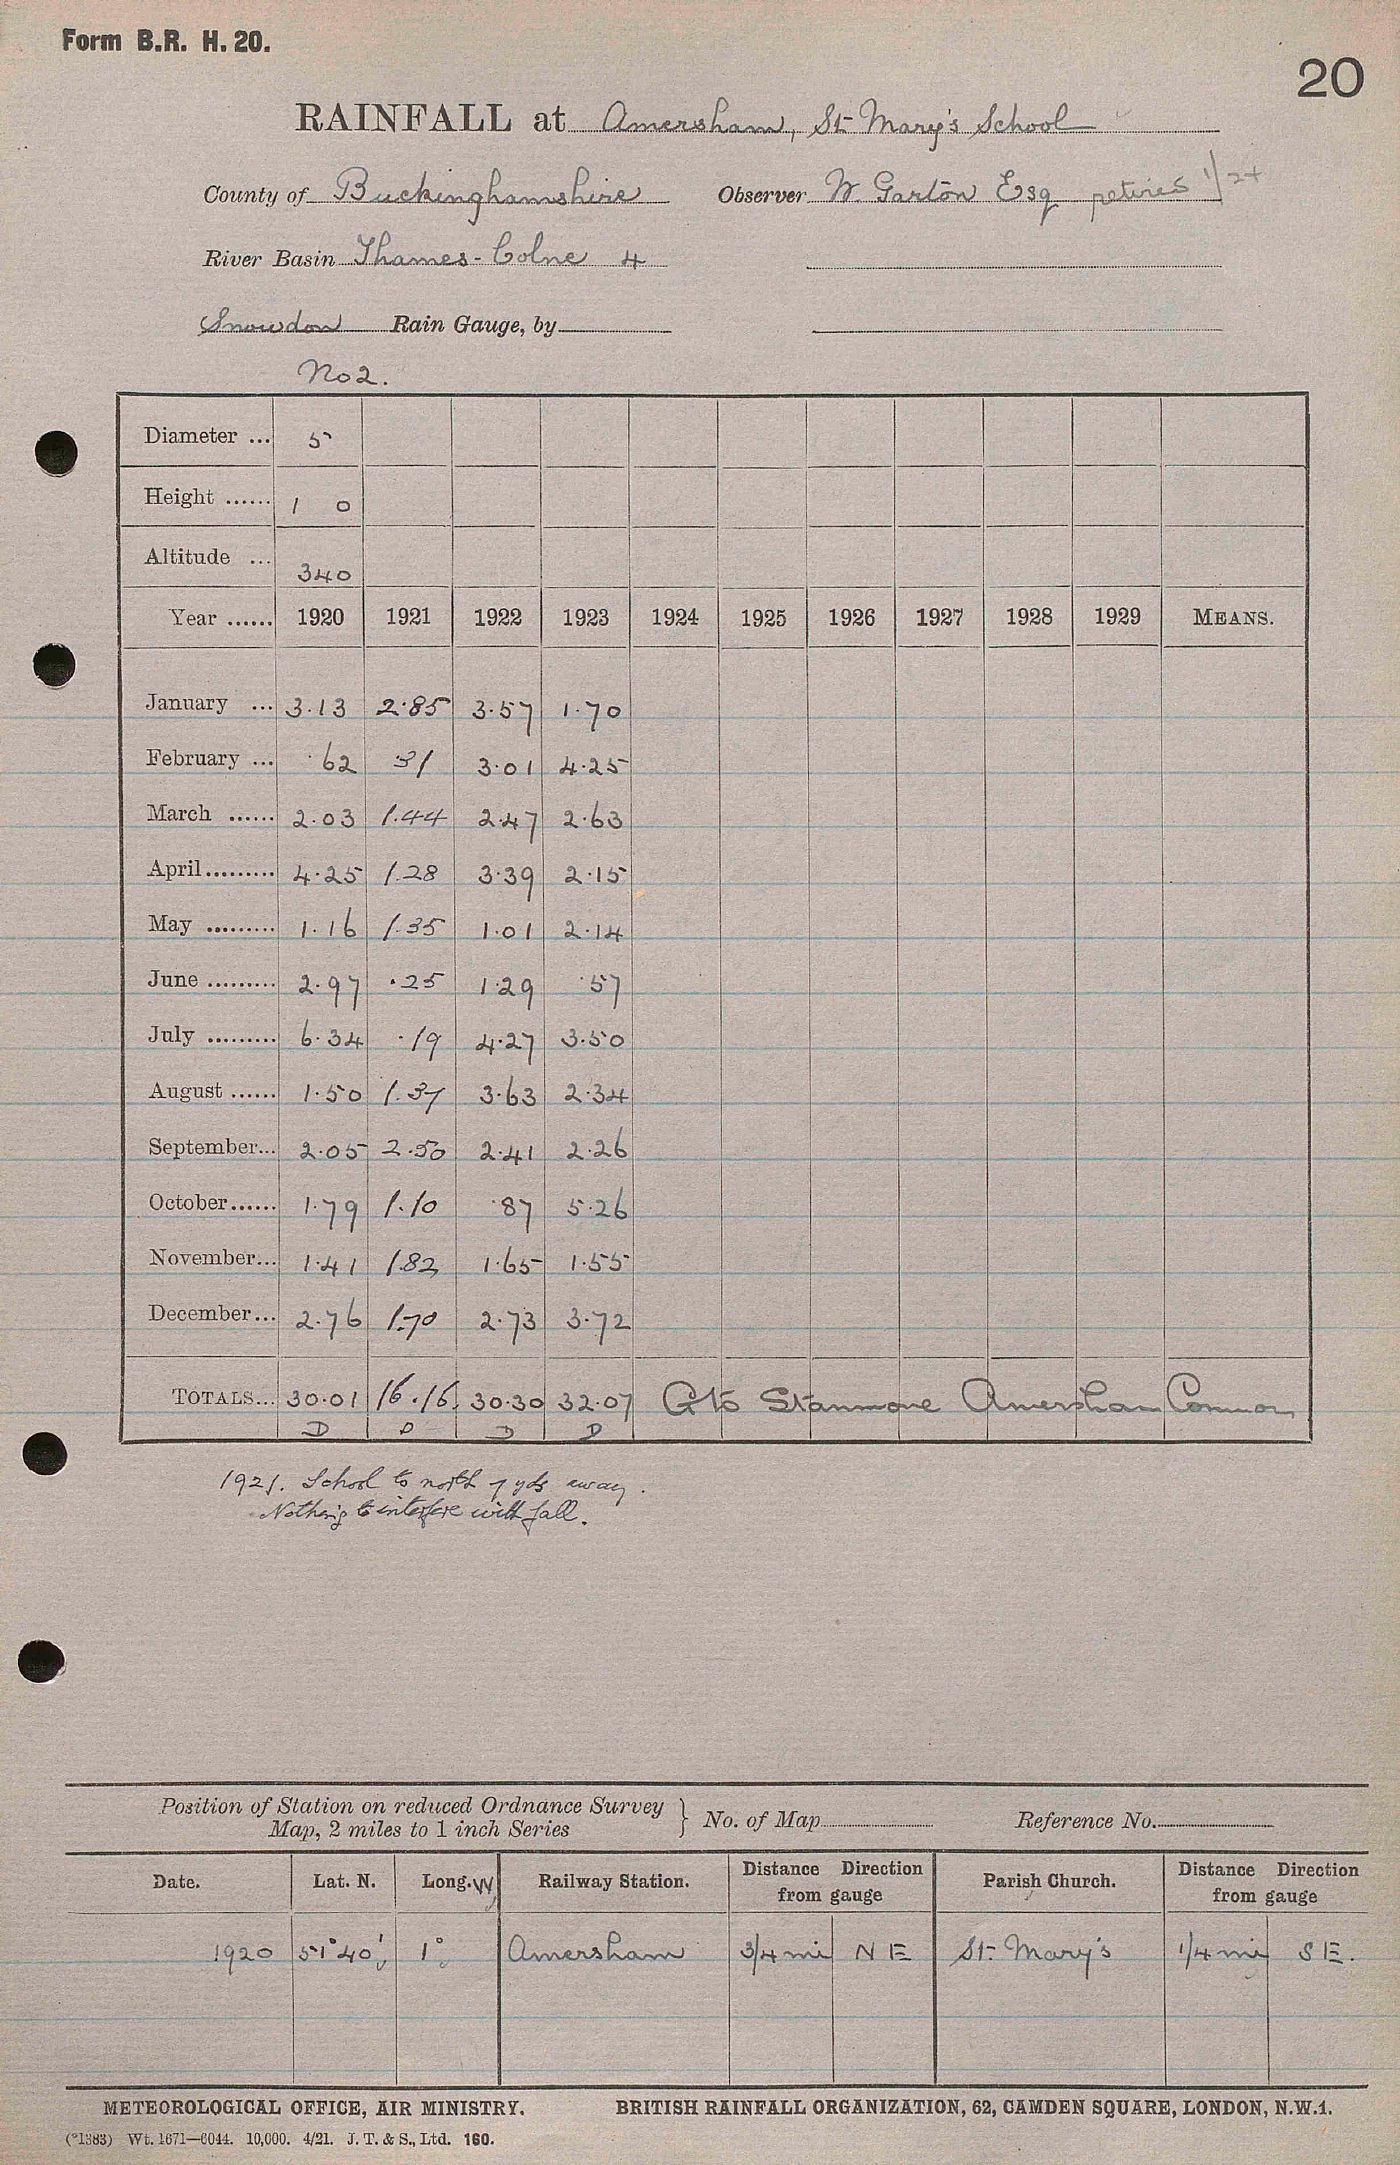 Form B.R. H. 20.
20
RAINFALL at Amersham, St Mary's School
County of Buckinghamshire Observer W. Garton Esq retires 1/24
River Basin Thames-Colne 4
Snowdon Rain Gauge, by
No 2.
Diameter ... 5
Height ...... 1 0
Altitude ... 340
Year ...... 1920 1921 1922 1923 1924 1925 1926 1927 1928 1929 MEANS.
January ... 3.13 2.85 3.57 1.70
February ... .62 .31 3.01 4.25
March ...... 2.03 1.44 2.47 2.63
April ......... 4.25 1.28 3.39 2.15
May ......... 1.16 1.35 1.01 2.14
June ......... 2.97 .25 1.29 .57
July ......... 6.34 .19 4.27 3.50
August ...... 1.50 1.37 3.63 2.34
September... 2.05 2.50 2.41 2.26
October...... 1.79 1.10 .87 5.26
November... 1.41 1.82 1.65 1.55
December... 2.76 1.70 2.73 3.72
TOTALS... 30.01 16.16 30.30 32.07 G to Stanmore Amersham Common
D D D D
1921. School to north 7 yds away.
Nothing to interfere with fall.
Position of Station on reduced Ordnance Survey
Map, 2 miles to 1 inch Series } No. of Map Reference No.
Date. Lat. N. Long. W Railway Station. Distance Direction from gauge Parish Church. Distance Direction from gauge
1920 51° 40' 1° Amersham 3/4 mi N E St. Mary's 1/4 mi S E.
METEOROLOGICAL OFFICE, AIR MINISTRY. BRITISH RAINFALL ORGANIZATION, 62, CAMDEN SQUARE, LONDON, N.W.1.
(*1383) Wt. 1671—6044. 10,000. 4/21. J. T. & S., Ltd. 160.